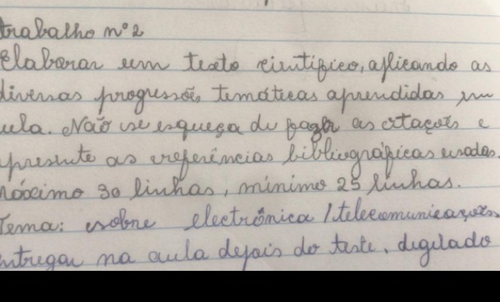 trabalho nº 2
Elaborar um texto científico, aplicando as
diversas progressões temáticas aprendidas em
aula. Não se esqueça de fazer as citações e
apresente as referências bibliográficas usadas.
Máximo 30 linhas, mínimo 25 linhas.
Tema: sobre electrônica / telecomunicações
entregar na aula depois do teste. degitado